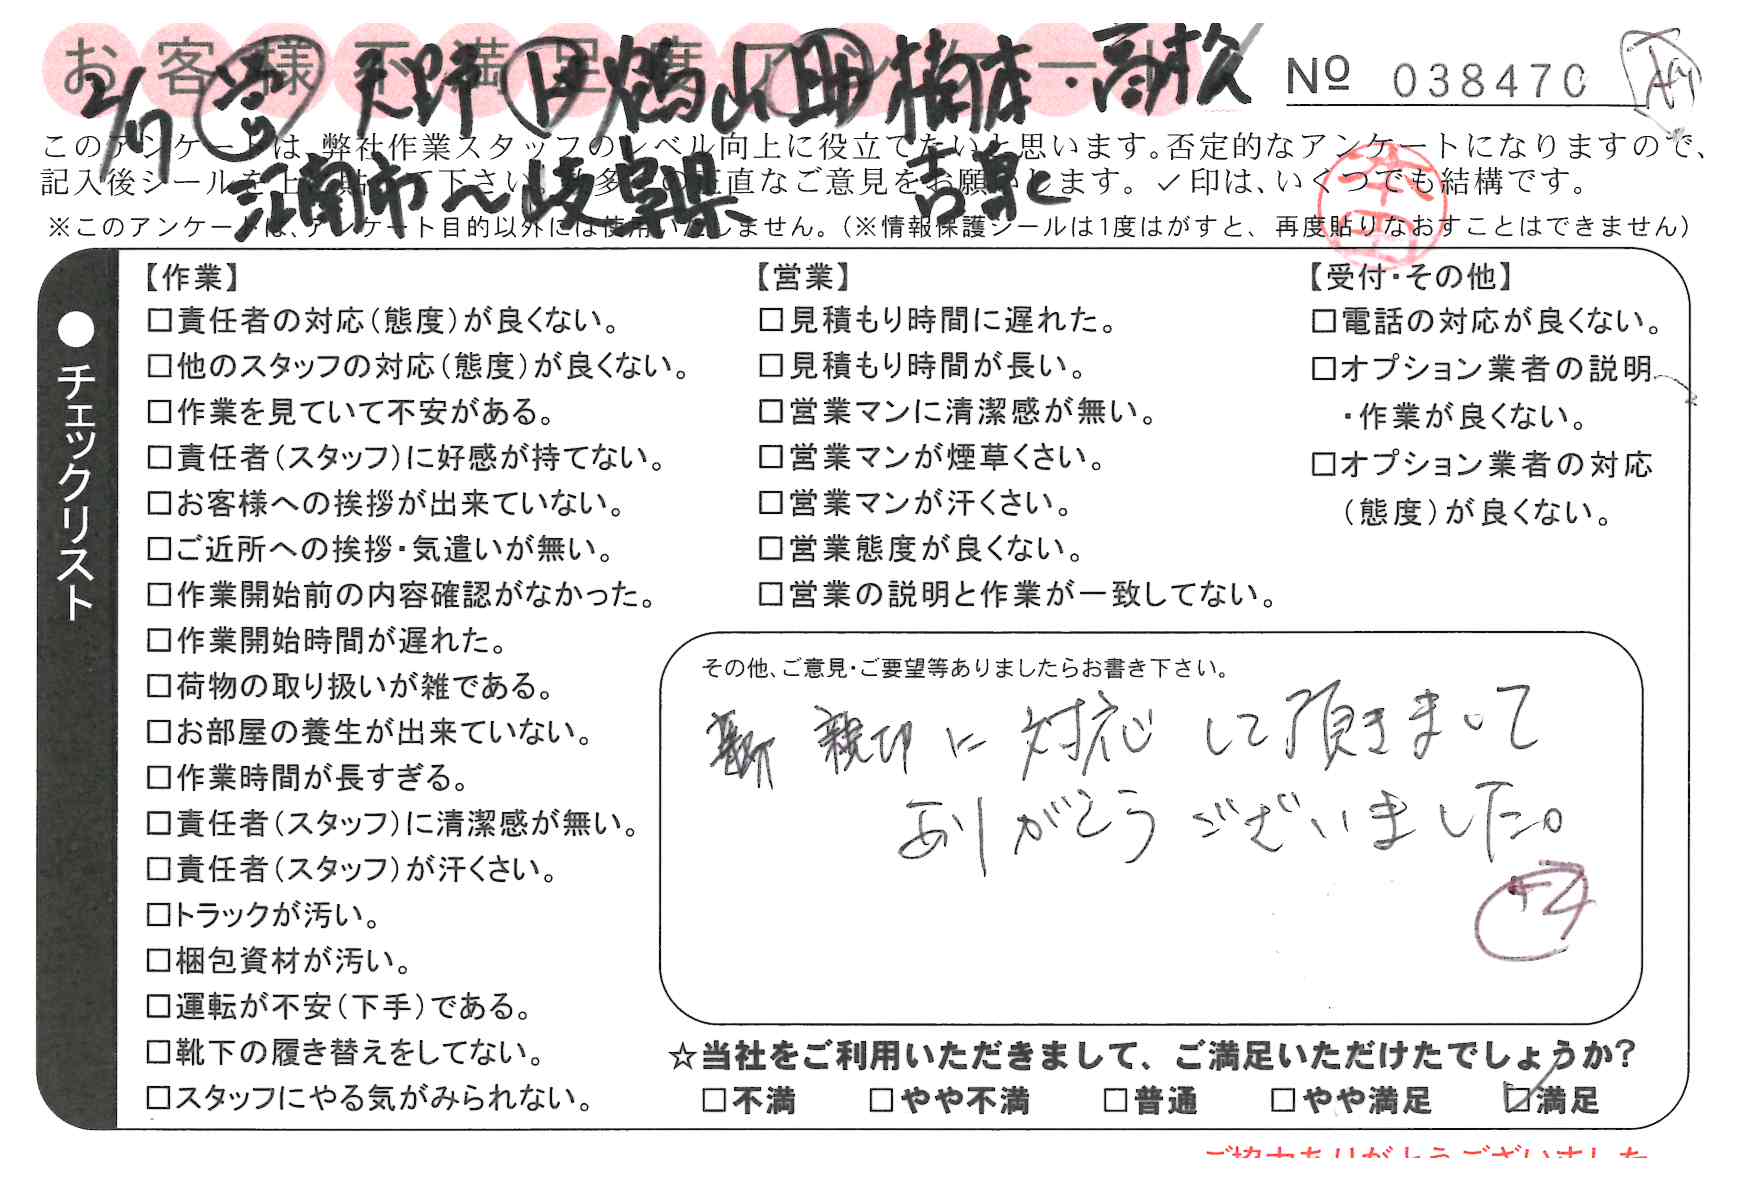 お客様不満足度アンケート
Nº 038470
2/17 天野 鶴山 橋本・高松
江南市～岐阜県 吉泉
このアンケートは、弊社作業スタッフのレベル向上に役立てたいと思います。否定的なアンケートになりますので、
記入後シールを上に貼って下さい。数多くの正直なご意見をお願いします。✓印は、いくつでも結構です。
※このアンケートは、アンケート目的以外には使用いたしません。(※情報保護シールは1度はがすと、再度貼りなおすことはできません)
●チェックリスト
【作業】
□責任者の対応(態度)が良くない。
□他のスタッフの対応(態度)が良くない。
□作業を見ていて不安がある。
□責任者(スタッフ)に好感が持てない。
□お客様への挨拶が出来ていない。
□ご近所への挨拶・気遣いが無い。
□作業開始前の内容確認がなかった。
□作業開始時間が遅れた。
□荷物の取り扱いが雑である。
□お部屋の養生が出来ていない。
□作業時間が長すぎる。
□責任者(スタッフ)に清潔感が無い。
□責任者(スタッフ)が汗くさい。
□トラックが汚い。
□梱包資材が汚い。
□運転が不安(下手)である。
□靴下の履き替えをしてない。
□スタッフにやる気がみられない。
【営業】
□見積もり時間に遅れた。
□見積もり時間が長い。
□営業マンに清潔感が無い。
□営業マンが煙草くさい。
□営業マンが汗くさい。
□営業態度が良くない。
□営業の説明と作業が一致してない。
【受付・その他】
□電話の対応が良くない。
□オプション業者の説明
・作業が良くない。
□オプション業者の対応
(態度)が良くない。
その他、ご意見・ご要望等ありましたらお書き下さい。
親切に対応して頂きまして
ありがとうございました。
+4
☆当社をご利用いただきまして、ご満足いただけたでしょうか?
□不満 □やや不満 □普通 □やや満足 ☑満足
ご協力ありがとうございました